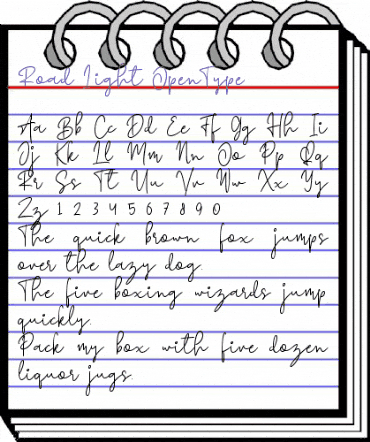 Road Light OpenType
Aa Bb Cc Dd Ee Ff Gg Hh Ii
Jj Kk Ll Mm Nn Oo Pp Qq
Rr Ss Tt Uu Vv Ww Xx Yy
Zz 1 2 3 4 5 6 7 8 9 0
The quick brown fox jumps
over the lazy dog.
The five boxing wizards jump
quickly.
Pack my box with five dozen
liquor jugs.